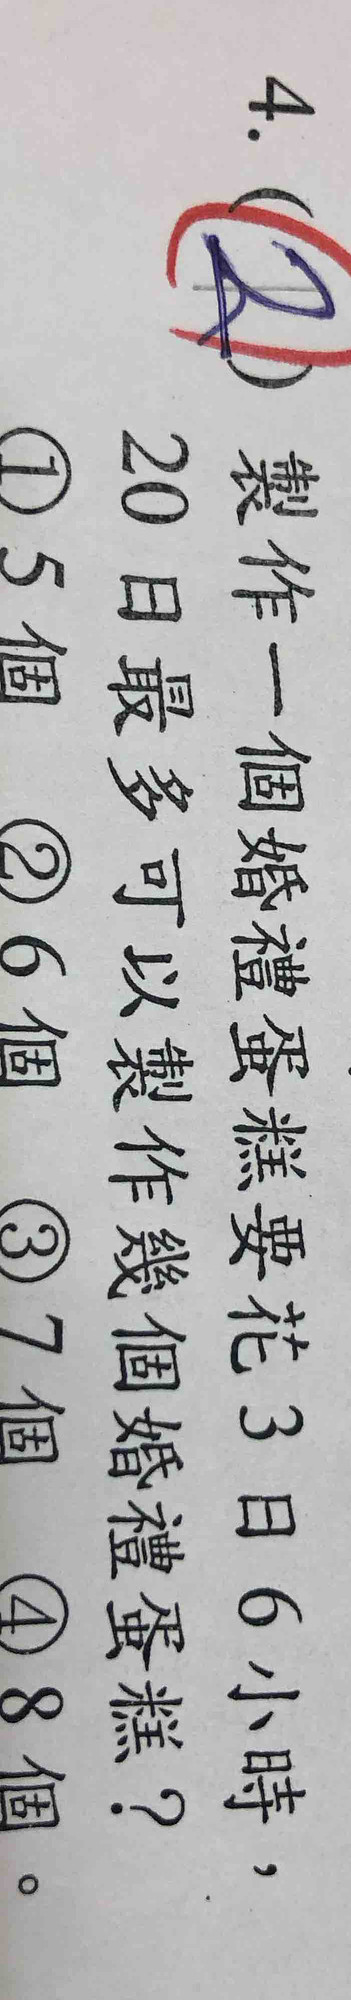 4. (2) 製作一個婚禮蛋糕要花3日6小時，
20日最多可以製作幾個婚禮蛋糕？
①5個 ②6個 ③7個 ④8個。